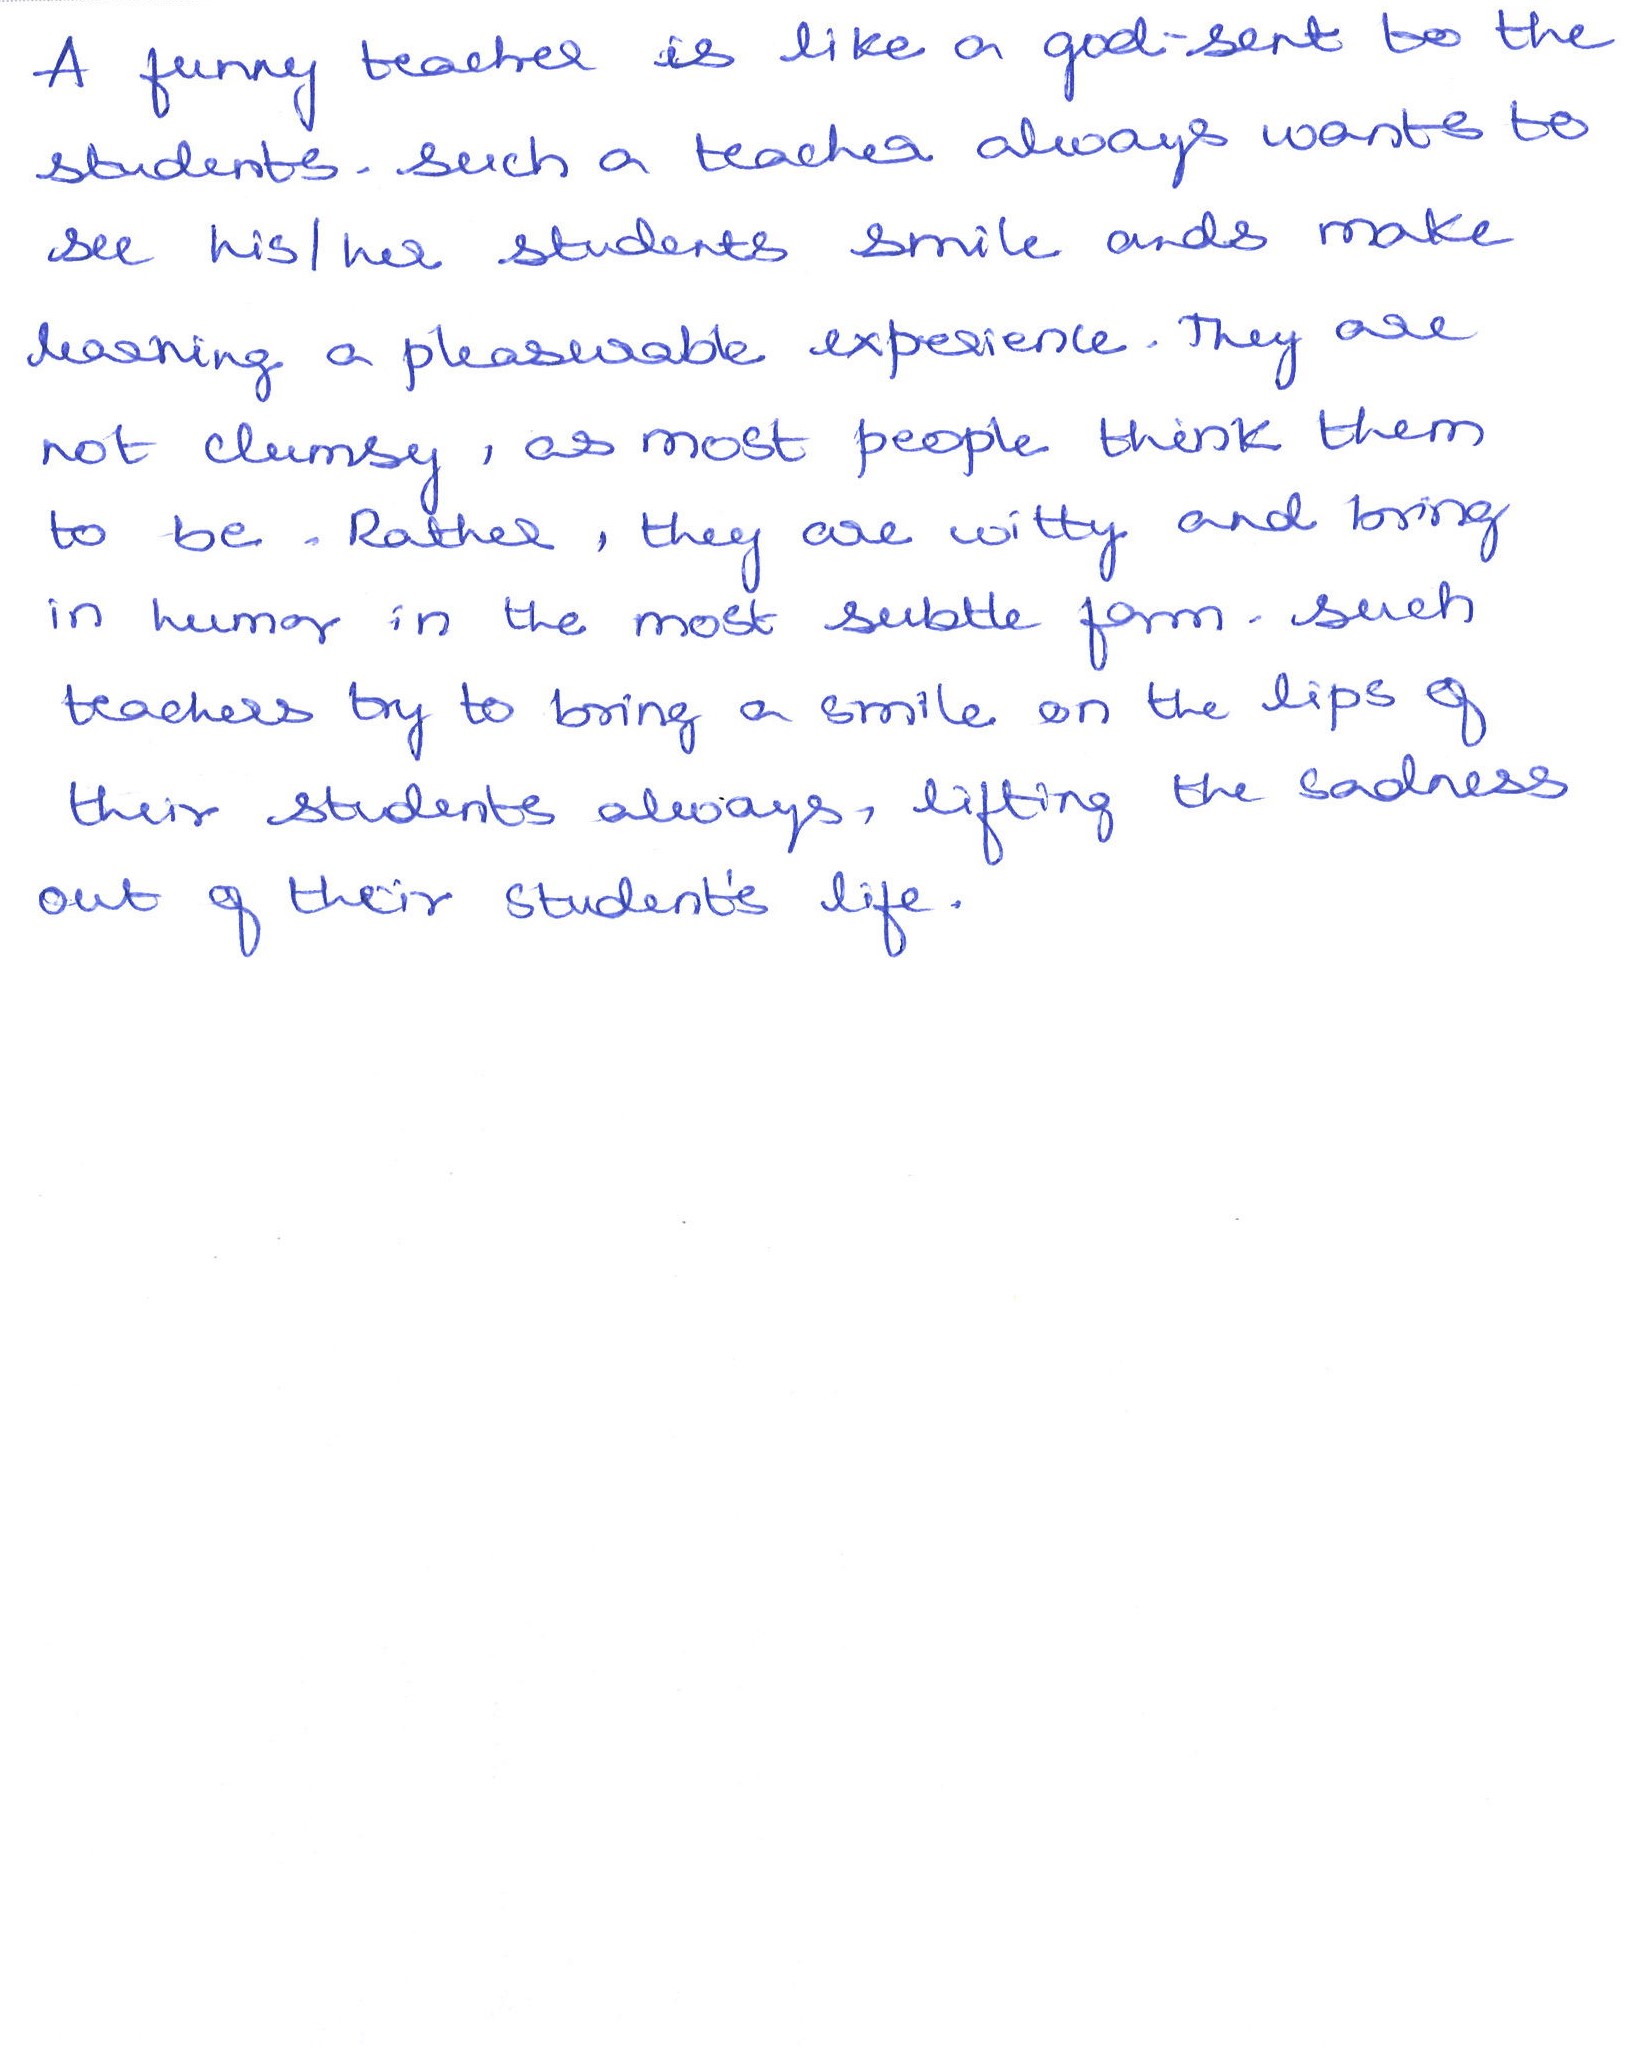 A funny teacher is like a god-sent to the
students. such a teacher always wants to
see his/her students smile ands make
learning a pleasurable experience. They are
not clumsy, as most people think them
to be. Rather, they are witty and bring
in humor in the most subtle form. such
teachers try to bring a smile on the lips of
their students always, lifting the sadness
out of their student's life.